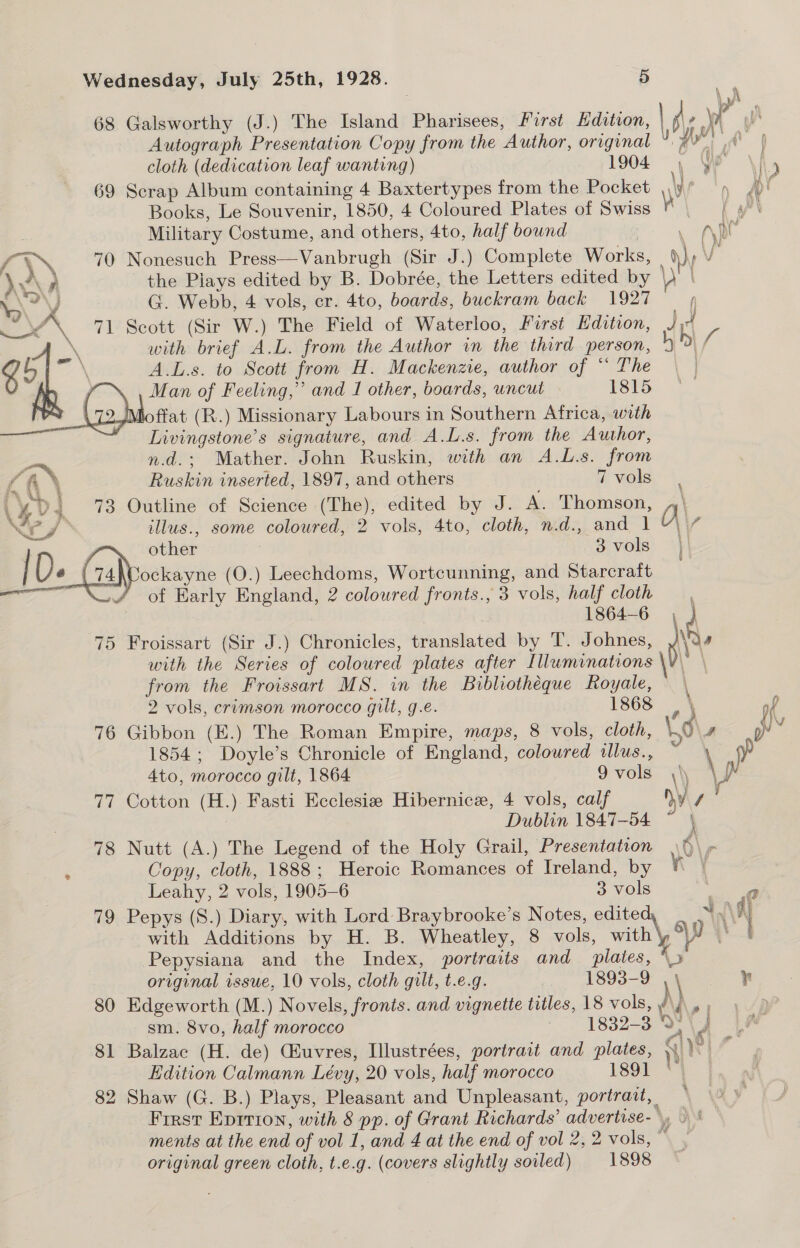 Wednesday, July 25th, 1928. 5
68 Galsworthy (J.) The Island Pharisees, First Edition,
Autograph Presentation Copy from the Author, original
cloth (dedication leaf wanting) 1904
69 Scrap Album containing 4 Baxtertypes from the Pocket
Books, Le Souvenir, 1850, 4 Coloured Plates of Swiss
Military Costume, and others, 4to, half bound
70 Nonesuch Press—Vanbrugh (Sir J.) Complete Works,
the Plays edited by B. Dobrée, the Letters edited by
G. Webb, 4 vols, cr. 4to, boards, buckram back 1927
71 Scott (Sir W.) The Field of Waterloo, First Edition,
with brief A.L. from the Author in the third person,
A.L.s. to Scott from H. Mackenzie, author of “The
Man of Feeling,” and 1 other, boards, uncut 1815
72 Moffat (R.) Missionary Labours in Southern Africa, with
Livingstone's signature, and A.L.s. from the Author,
n.d.; Mather. John Ruskin, with an A.L.s. from
Ruskin inserted, 1897, and others 7 vols
73 Outline of Science (The), edited by J. A. Thomson,
illus., some coloured, 2 vols, 4to, cloth, n.d., and 1
other 3 vols
74 Cockayne (O.) Leechdoms, Wortcunning, and Starcraft
of Early England, 2 coloured fronts., 3 vols, half cloth
1864-6
75 Froissart (Sir J.) Chronicles, translated by T. Johnes,
with the Series of coloured plates after Illuminations
from the Froissart MS. in the Bibliothèque Royale,
2 vols, crimson morocco gilt, g.e. 1868
76 Gibbon (E.) The Roman Empire, maps, 8 vols, cloth,
1854; Doyle's Chronicle of England, coloured illus.,
4to, morocco gilt, 1864 9 vols
77 Cotton (H.) Fasti Ecclesiæ Hibernicæ, 4 vols, calf
Dublin 1847-54
78 Nutt (A.) The Legend of the Holy Grail, Presentation
Copy, cloth, 1888; Heroic Romances of Ireland, by
Leahy, 2 vols, 1905-6 3 vols
79 Pepys (S.) Diary, with Lord Braybrooke's Notes, edited,
with Additions by H. B. Wheatley, 8 vols, with
Pepysiana and the Index, portraits and plates,
original issue, 10 vols, cloth gilt, t.e.g. 1893-9
80 Edgeworth (M.) Novels, fronts. and vignette titles, 18 vols,
sm. 8vo, half morocco 1832-3
81 Balzac (H. de) Œuvres, Illustrées, portrait and plates,
Edition Calmann Lévy, 20 vols, half morocco 1891
82 Shaw (G. B.) Plays, Pleasant and Unpleasant, portrait,
First Edition, with 8 pp. of Grant Richards' advertise-
ments at the end of vol 1, and 4 at the end of vol 2, 2 vols,
original green cloth, t.e.g. (covers slightly soiled) 1898